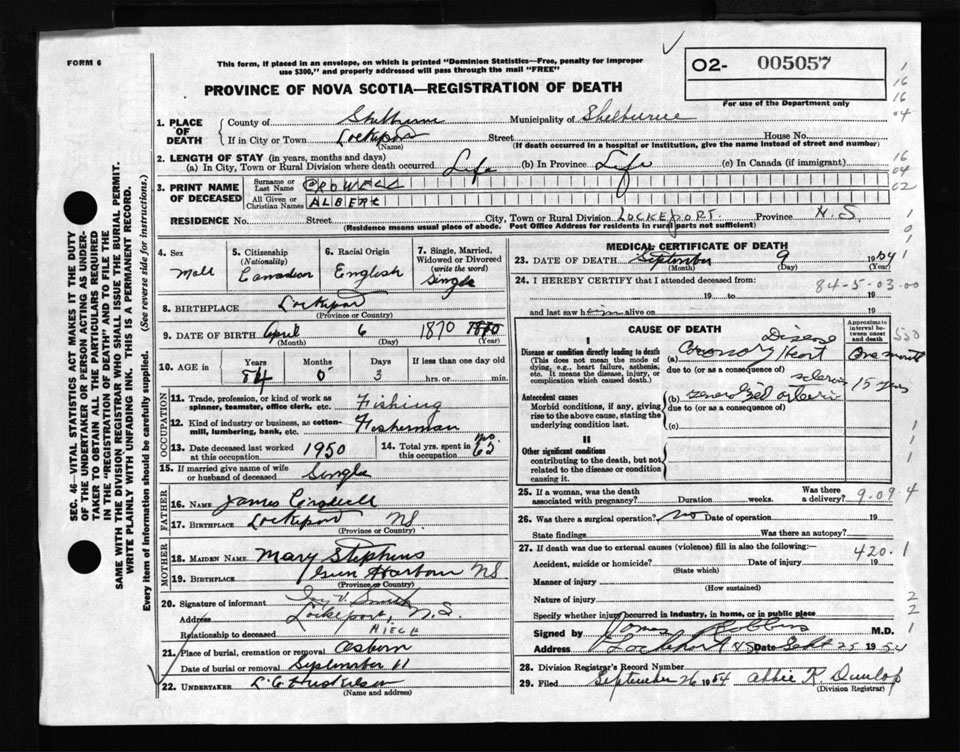 FORM 6
This form, if placed in an envelope, on which is printed "Dominion Statistics—Free, penalty for improper
use $300," and properly addressed will pass through the mail "FREE"
PROVINCE OF NOVA SCOTIA—REGISTRATION OF DEATH
O2- 005057
For use of the Department only
1. PLACE OF DEATH
County of Shelburne Municipality of Shelburne
If in City or Town Lockeport Street House No.
(Name) (If death occurred in a hospital or institution, give the name instead of street and number)
2. LENGTH OF STAY (in years, months and days)
(a) In City, Town or Rural Division where death occurred Life (b) In Province Life (c) In Canada (if immigrant)
3. PRINT NAME OF DECEASED
Surname or Last Name CROWELL
All Given or Christian Names ALBERT
RESIDENCE No. Street City, Town or Rural Division LOCKEPORT. Province N.S
(Residence means usual place of abode. Post Office Address for residents in rural parts not sufficient)
4. Sex Male
5. Citizenship (Nationality) Canadian
6. Racial Origin English
7. Single, Married, Widowed or Divorced (write the word) Single
8. BIRTHPLACE Lockeport
(Province or Country)
9. DATE OF BIRTH April 6 1870
(Month) (Day) (Year)
10. AGE in Years 84 Months 0 Days 3 If less than one day old hrs. or min.
OCCUPATION
11. Trade, profession, or kind of work as spinner, teamster, office clerk, etc. Fishing
12. Kind of industry or business, as cotton-mill, lumbering, bank, etc. Fisherman
13. Date deceased last worked at this occupation 1950
14. Total yrs. spent in this occupation 65
15. If married give name of wife or husband of deceased Single
FATHER
16. NAME James Crowell
17. BIRTHPLACE Lockeport NS.
(Province or Country)
MOTHER
18. MAIDEN NAME Mary Stephens
19. BIRTHPLACE Gun Harbour NS
(Province or Country)
20. Signature of informant Smith
Address Lockeport, N.S.
Relationship to deceased NIECE
21. Place of burial, cremation or removal Osborn
Date of burial or removal September 11
22. UNDERTAKER
(Name and address)
MEDICAL CERTIFICATE OF DEATH
23. DATE OF DEATH September 9 1954
(Month) (Day) (Year)
24. I HEREBY CERTIFY that I attended deceased from:
84-5-03-00
19 to 19
and last saw him alive on 19
CAUSE OF DEATH
Approximate interval between onset and death
I
Disease or condition directly leading to death
(This does not mean the mode of dying, e.g., heart failure, asthenia, etc. It means the disease, injury, or complication which caused death.)
(a) Coronary Heart Disease One month
due to (or as a consequence of)
Antecedent causes
Morbid conditions, if any, giving rise to the above cause, stating the underlying condition last.
(b) generalized arterio sclerosis 15 yrs
due to (or as a consequence of)
(c)
II
Other significant conditions
contributing to the death, but not related to the disease or condition causing it.
25. If a woman, was the death associated with pregnancy? Duration weeks. Was there a delivery?
9-09
26. Was there a surgical operation? No Date of operation 19
State findings Was there an autopsy?
27. If death was due to external causes (violence) fill in also the following:—
420.1
Accident, suicide or homicide? Date of injury 19
(State which)
Manner of injury
(How sustained)
Nature of injury
Specify whether injury occurred in industry, in home, or in public place
Signed by Robbins M.D.
Address Lockeport NS Date Sept 25 1954
28. Division Registrar's Record Number
29. Filed September 26 1954 Abbie K. Dunlop
(Division Registrar)
SEC. 46—VITAL STATISTICS ACT MAKES IT THE DUTY
OF THE UNDERTAKER OR PERSON ACTING AS UNDER-
TAKER TO OBTAIN ALL THE PARTICULARS REQUIRED
IN THE "REGISTRATION OF DEATH" AND TO FILE THE
SAME WITH THE DIVISION REGISTRAR WHO SHALL ISSUE THE BURIAL PERMIT.
WRITE PLAINLY WITH UNFADING INK. THIS IS A PERMANENT RECORD.
Every item of Information should be carefully supplied. (See reverse side for instructions.)